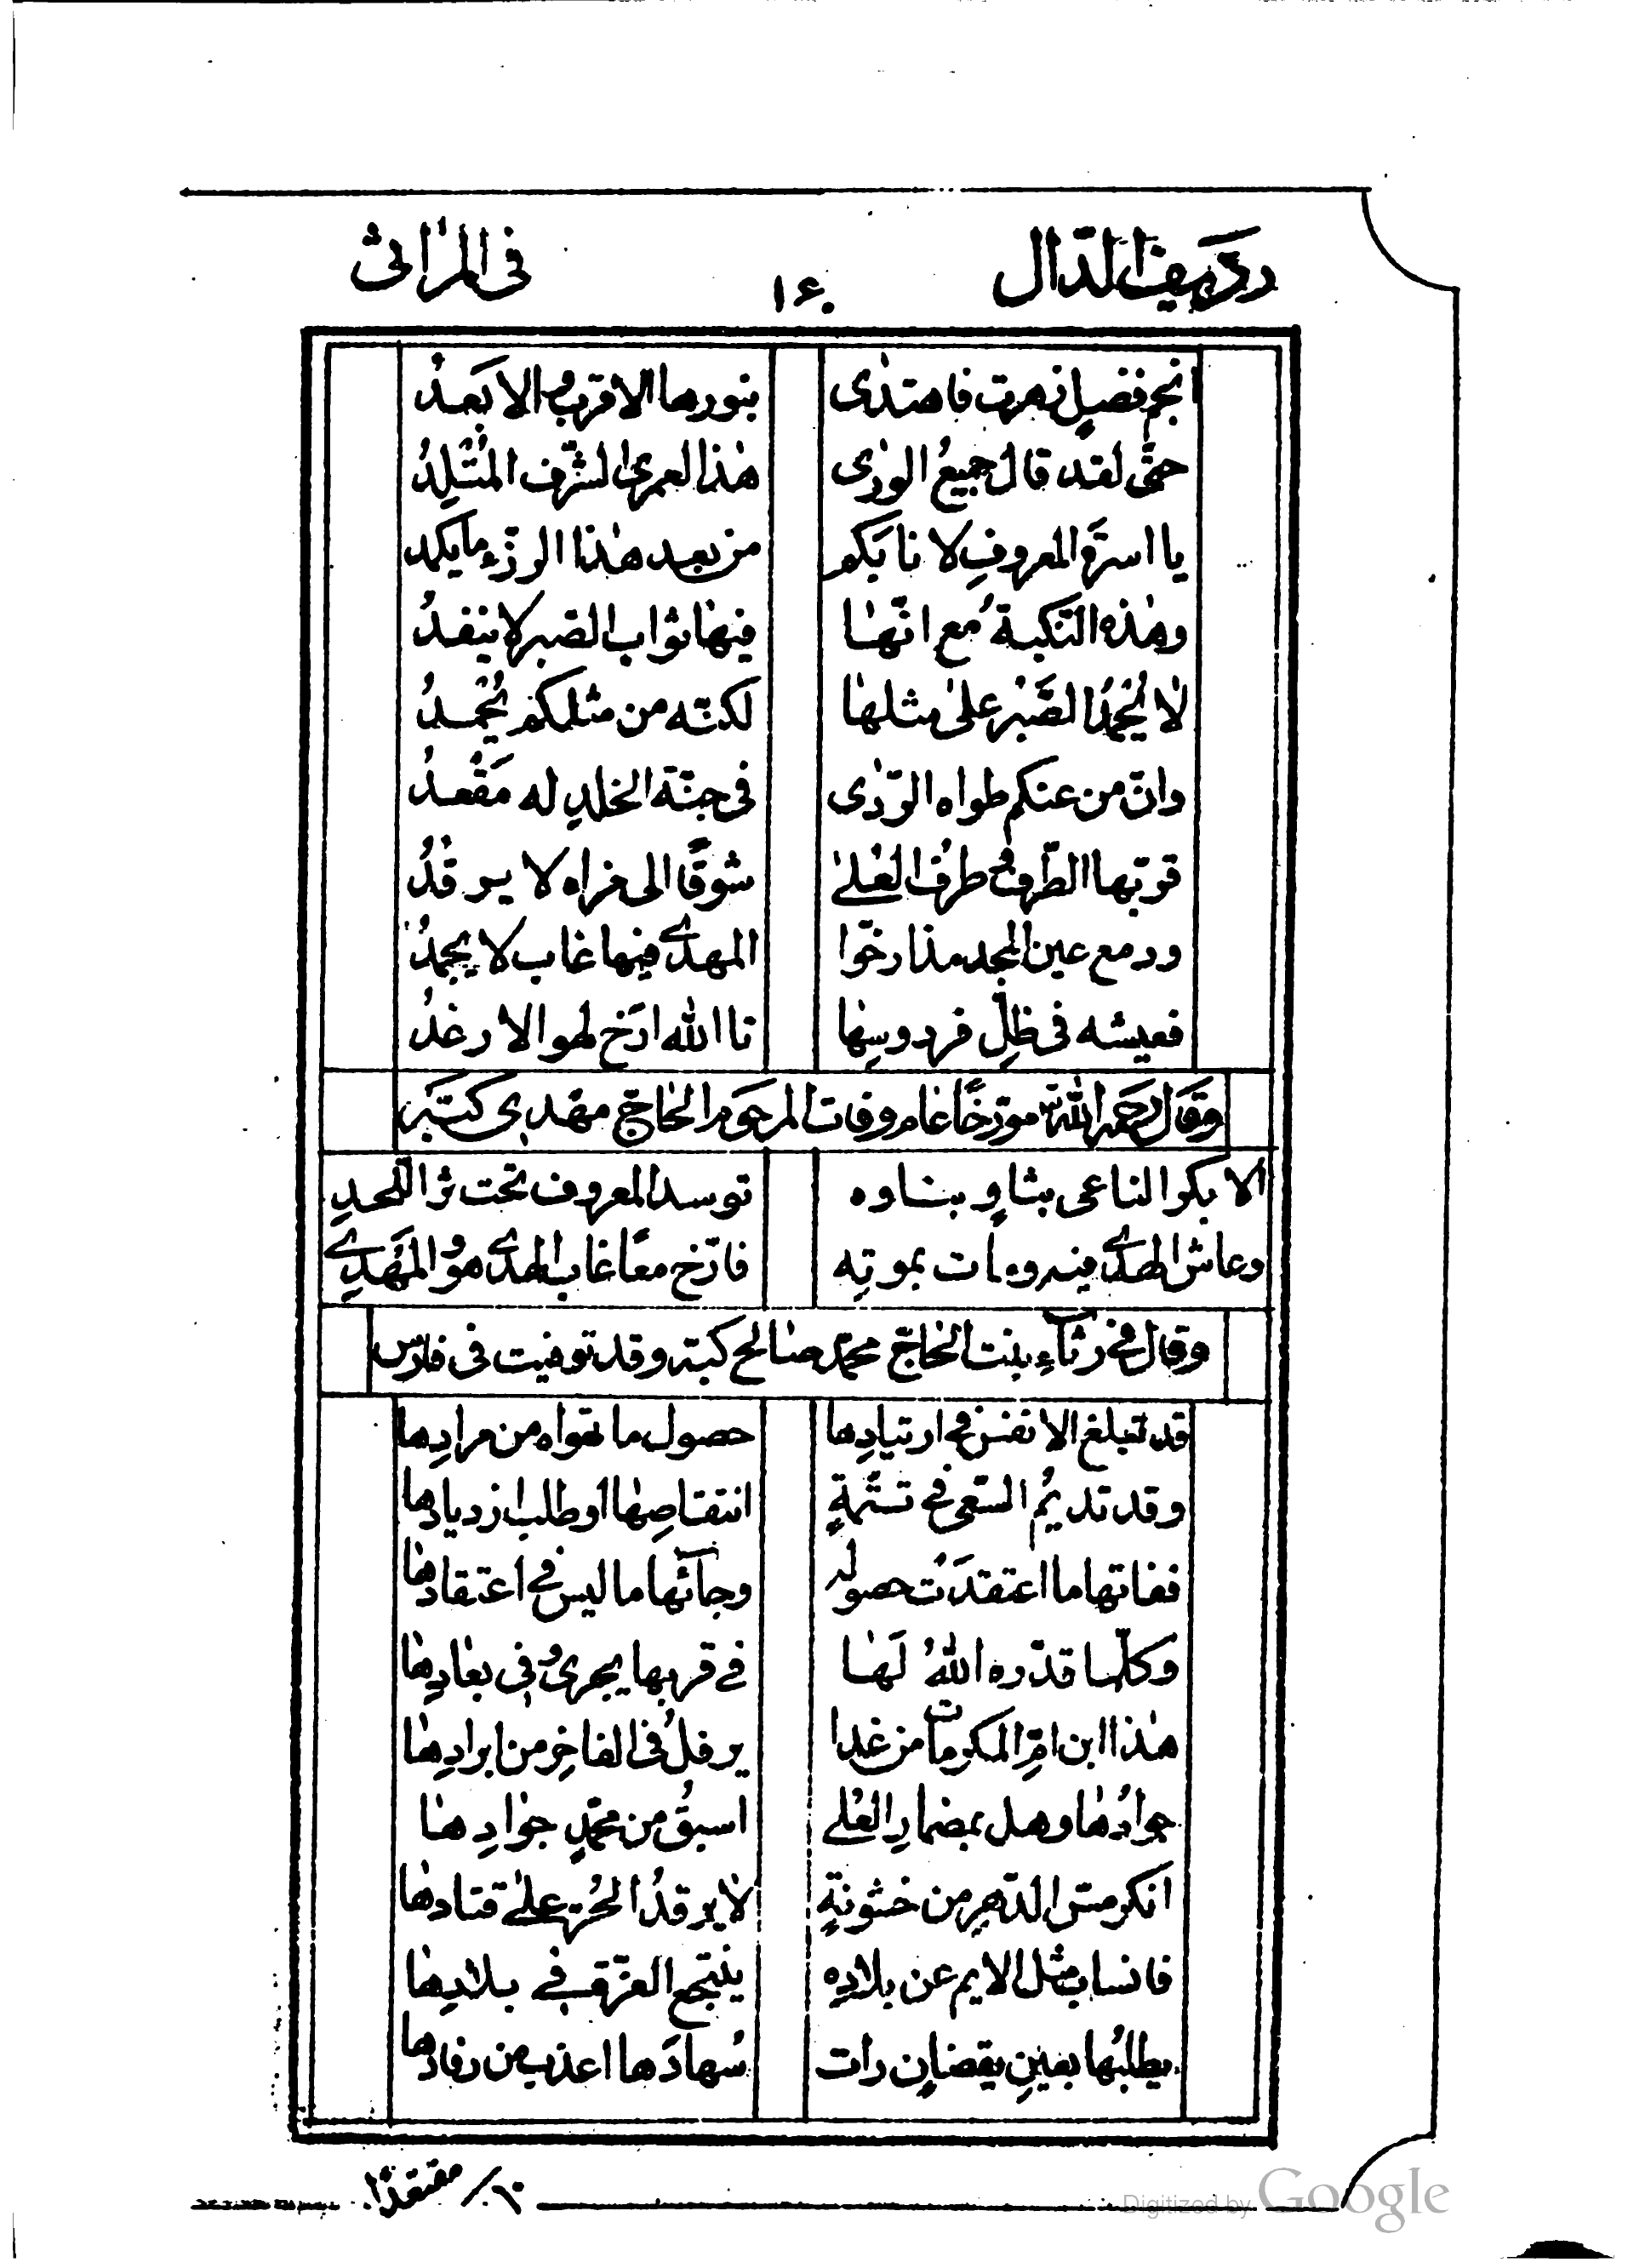 رديف الدّال ١۶٠ فى المراثى
انجم فضلٍ زهرت فاهتدى بنورها الاقرب والا بَعدُ
حتّى لقد قال جميعُ الورى هذا لعمرى الشّرف المُتْلِدُ
يا اسرَة المعروفِ لا نابَكم من بعد هذا الرّزء ما يكمد
وهذه النّكبة مع انّها فيها ثواب الصبر لا ينفدُ
لا يُحمدُ الصَّبْر على مثلها لكنّه من مثلكم يُحْمدُ
وانّ من عنكم طواه الرّدى فى جنّة الخلدِ له مَقْعدُ
قرّ بها الطّرف وطرفُ العُلىٰ شوقًا الى مراه لا يرقدُ
ودمع عين المجد مذ ارخوا المهدى فيها غاب لا يجمدُ
فعيشه فى ظلِّ فردوسِها تا الله ارّخ لهو الارغدُ
وقال رحمه الله مورّخًا عام وفات المرحوم الحاجّ مهدى كبّه
الا بكر الناعى بثاوٍ بناوه توسد المعروف تحت ثرا اللّحدِ
وعاش الهدى فيه ومات بموتِه فارّخ معًا غاب الهدى هو والمَهْدِى
وقال فى رثآءِ بنت الحاجّ محمّد صالح كبّه وقد توفيت فى فارس
قد تبلغ الانفس فى ارتيادِها حصول ما تهواه من مرادِها
وقد تديمُ السّعى فى تتمّةٍ انتقاصِها او طلب ازديادها
ففاتها ما اعتقدَت حصوله وجآئها ما ليس فى اعتقادها
وكلّما قدّره اللهُ لَها فى قربها يجرى وفى بعادِها
هذا ابن امِّ المكرمات من غدا يرفلُ فى الفاخِر من ابرادِها
جوادُها وهل بمضمارِ العُلى اسبقُ من محمّدٍ جوادِها
انكر مسّ الدّهر من خشونةٍ لا يرقدُ الحُرّ على قتادها
فانساب مثل الايم عن بلادِه ينتجع العزّة فى بلادِها
يطلبُها بعينِ يقضانٍ رات سُهادَها اعذب من رقادها
مفتقدًا
Digitized by Google